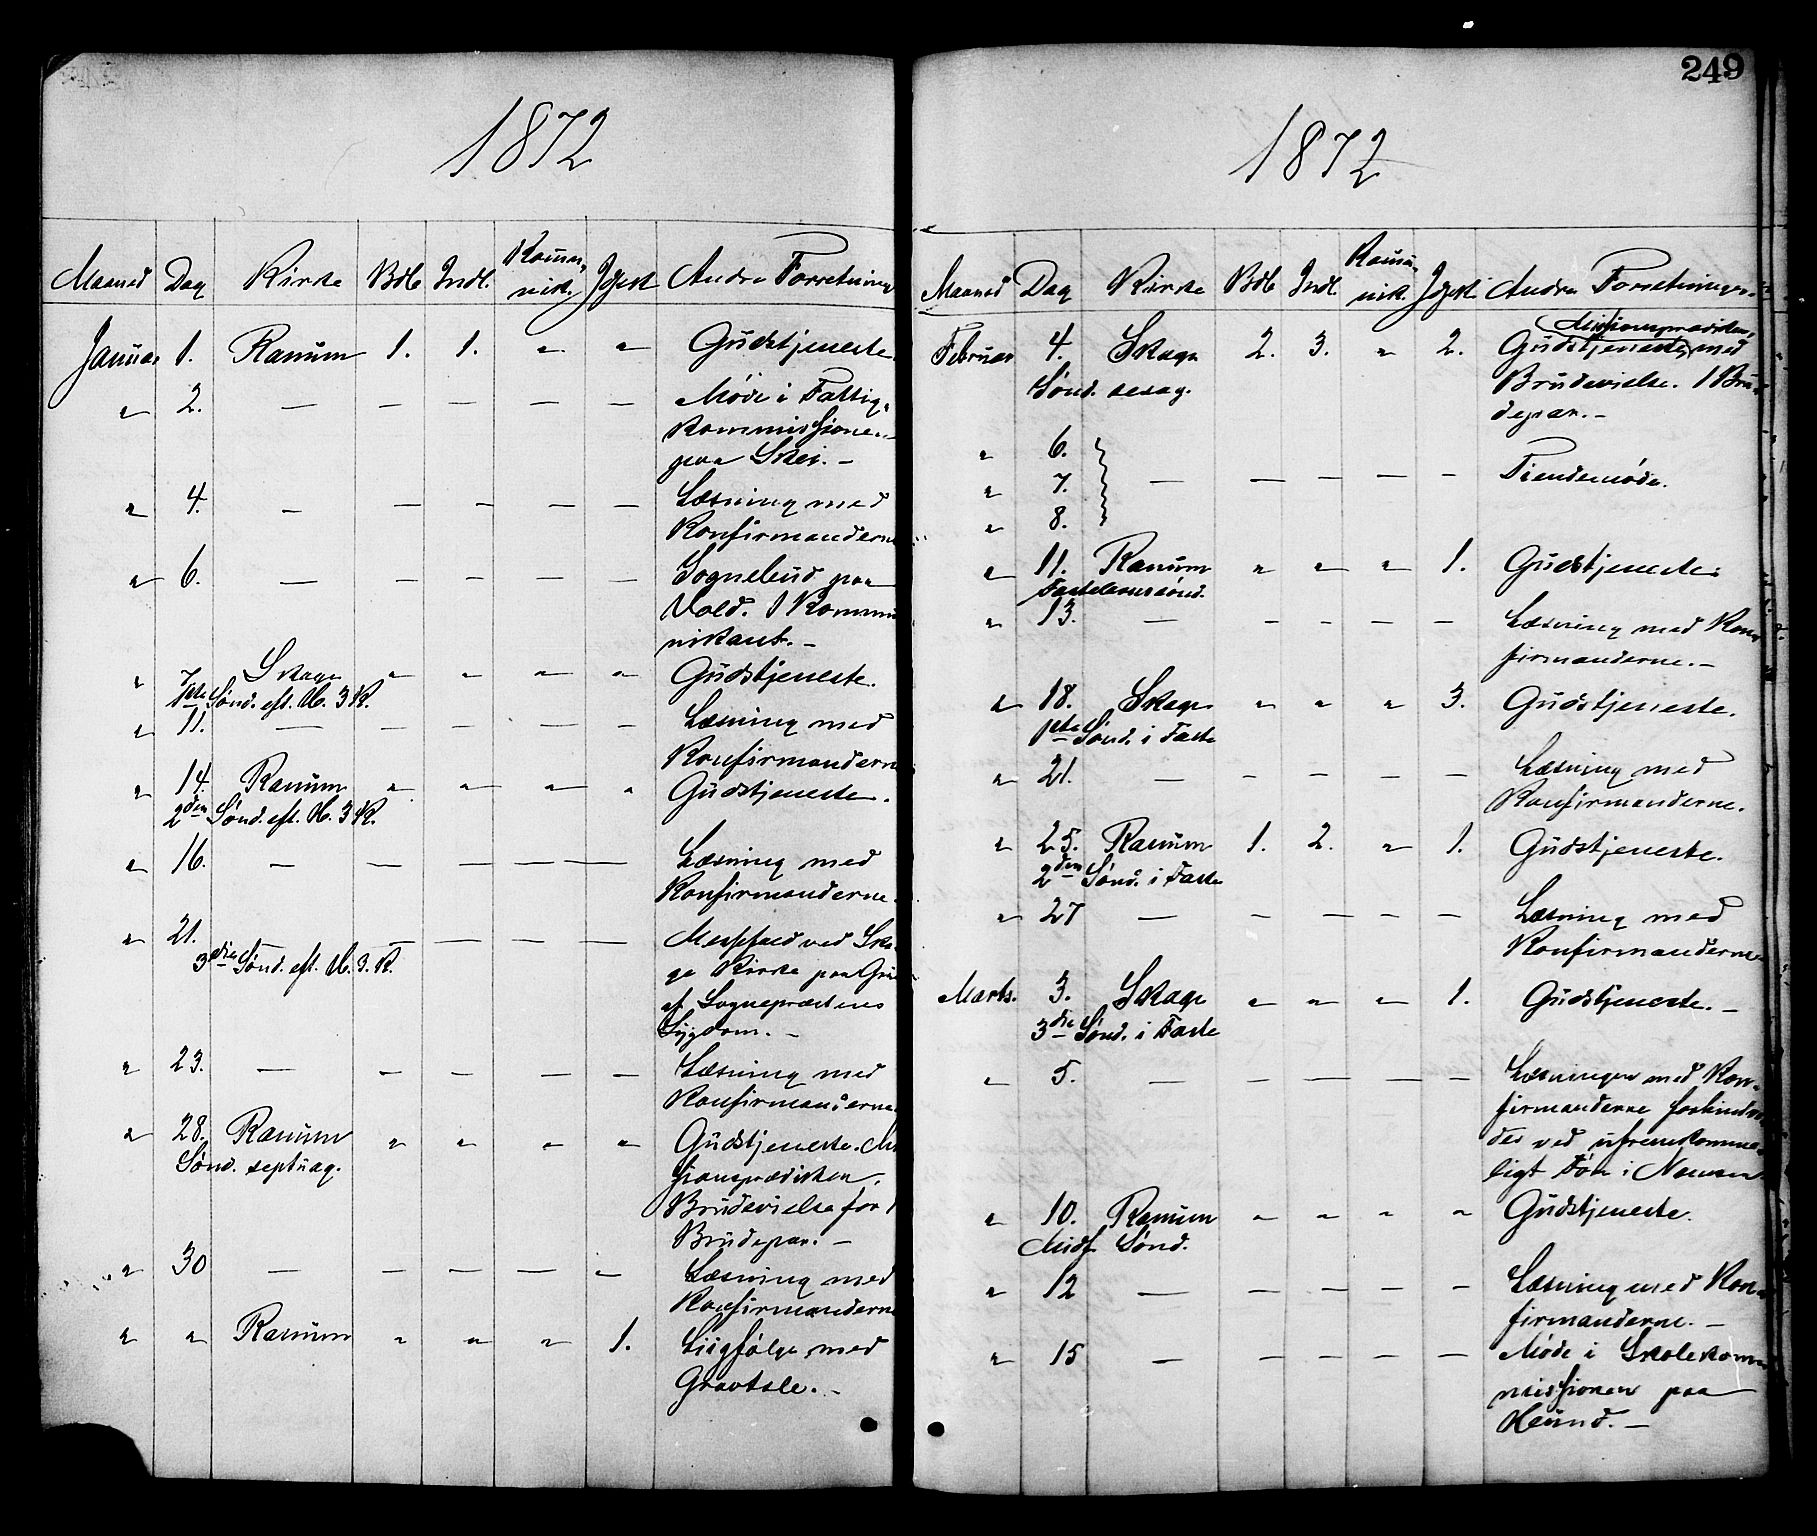 1872
Maaned Dag Kirke Bdb Indl. Kommu- nik. Jgsk Andre Forretninger
Januar 1. Ranum 1. 1. " " Gudstjeneste.
" 2. — — — — — Møde i Fattig-
kommissionen
paa Skei. —
" 4. — — — — — Læsning med
Konfirmanderne
" 6. — — — — — Sognebud paa
Vold. 1 Kommu
nikant. —
" 7 Skage " " " " Gudstjeneste.
1ste Sønd. eft. H. 3 K.
" 11. — — — — — Læsning med
Konfirmanderne
" 14. Ranum " " " " Gudstjeneste.
2den Sønd. eft. H. 3 K.
" 16. — — — — — Læsning med
Konfirmanderne.
" 21. — — — — — Messefald ved Ska-
3die Sønd. eft. H. 3. K. ge Kirke paa Gru
af Sognepræstens
Sygdom. —
" 23. — — — — — Læsning med
Konfirmanderne
" 28. Ranum " " " " Gudstjeneste. Mis
Sønd. septuag. sionsprædiken.
Brudevielse for 1
Brudepar. —
" 30 — — — — — Læsning med
Konfirmanderne
" " Ranum " " " 1. Liigfølge med
Gravtale. —
249
1872
Maaned Dag Kirke Bdb Indl. Kommu- nik. Jgsk. Andre Forretninger.
Missionsprædiken,
Februar 4. Skage 2. 3. " 2. Gudstjeneste, med
Sønd. sexag. Brudevielse. 1 Bru-
depar. —
" 6.
" 7. — — — — — Tiendemøde.
" 8.
" 11. Ranum " " " 1. Gudstjeneste.
Fastelavnssønd.
" 13. — — — — — Læsning med Kon
firmanderne. —
" 18. Skage " " " 3. Gudstjeneste.
1ste Sønd. i Faste
" 21. — — — — — Læsning med
Konfirmanderne.
" 25. Ranum 1. 2. " 1. Gudstjeneste.
2den Sønd. i Faste
" 27 — — — — — Læsning med
Konfirmanderne
Marts. 3. Skage " " " 1. Gudstjeneste. —
3die Sønd. i Faste
" 5. — — — — — Læsningen med Kon-
firmanderne forhindre
des ved ufremkomme-
ligt Føre i Namsen
" 10. Ranum " " " " Gudstjeneste.
Midf Sønd.
" 12 — — — — — Læsning med Kon-
firmanderne. —
" 15 — — — — — Møde i Skolekom
missionen paa
Hound. —